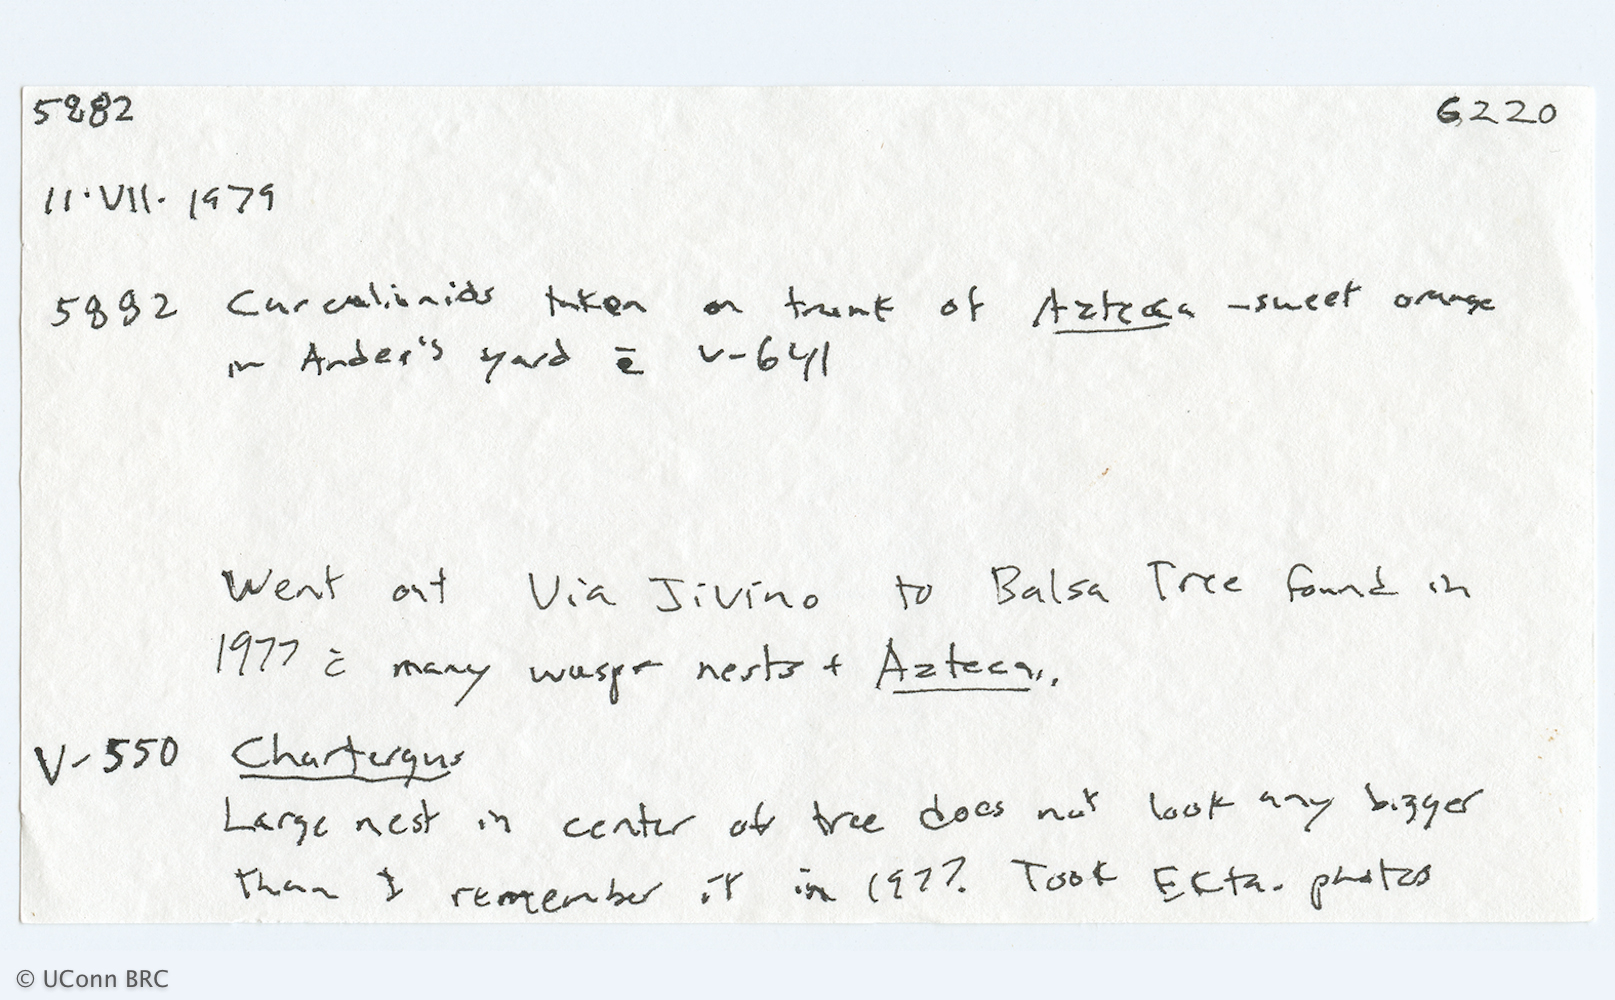 5882 6220
11·VII·1979
5882 Curculionids taken on trunk of Azteca - sweet orange
in Ander's yard c̄ V-641
Went out Via Jivino to Balsa Tree found in
1977 c̄ many wasps nests + Azteca.
V-550 Chartergus
Large nest in center of tree does not look any bigger
than I remember it in 1977. Took Ekta. photos
© UConn BRC